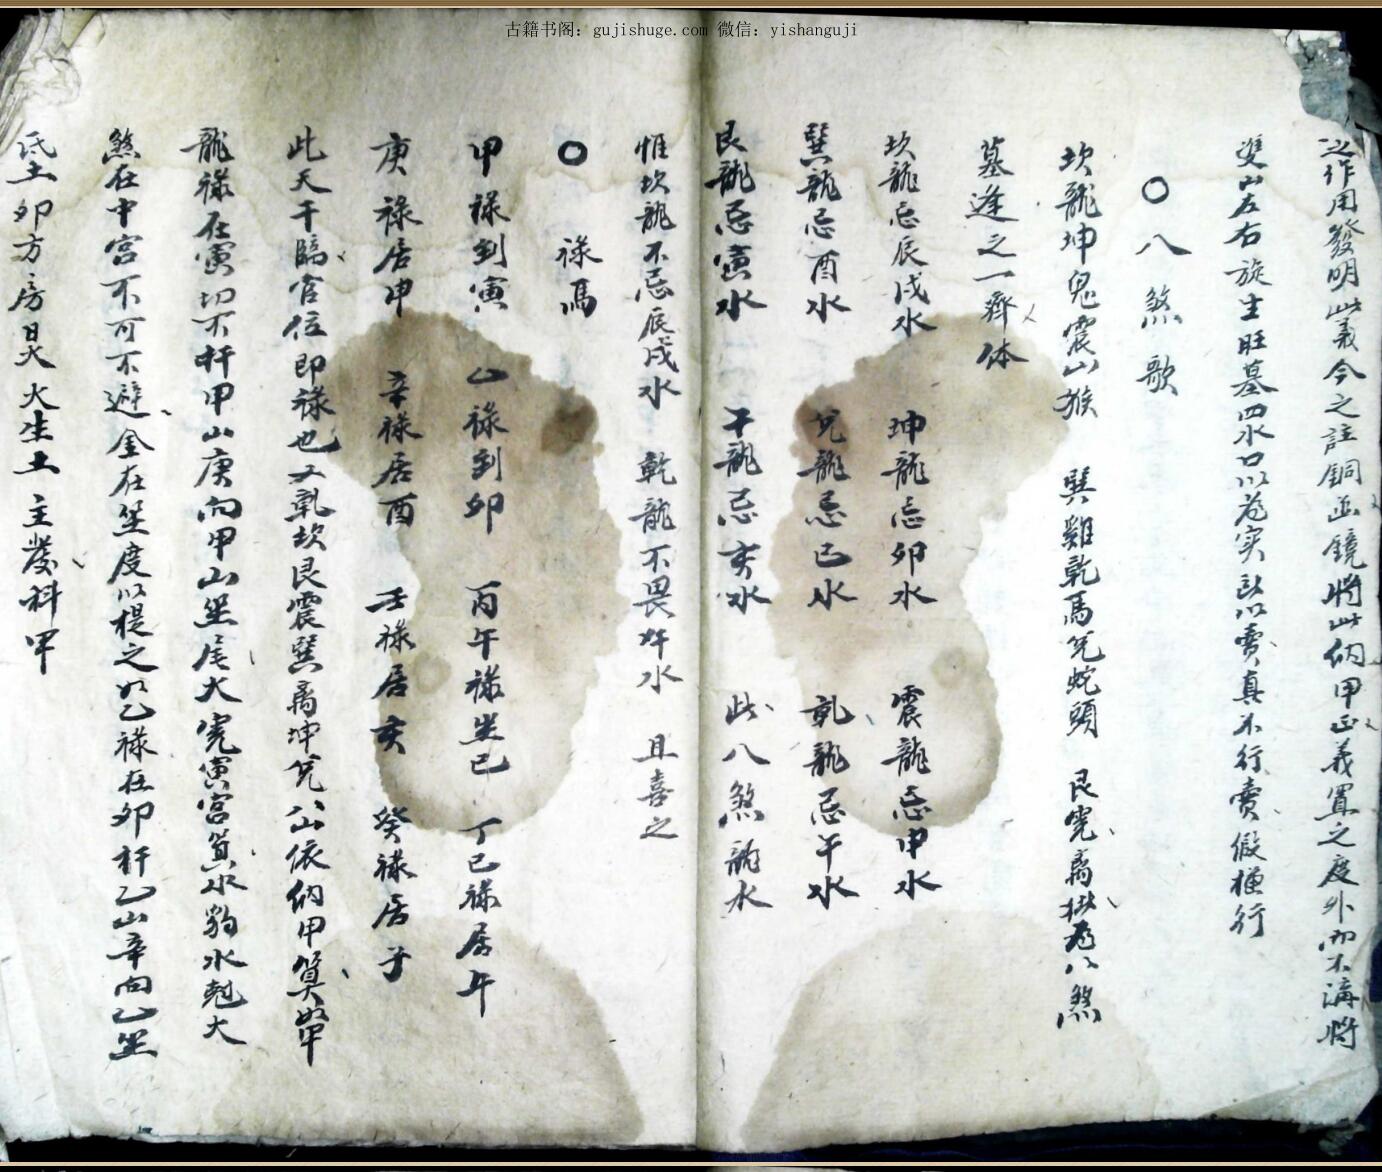 古籍书阁：gujishuge.com 微信：yishanguji
之作用發明此義今之註銅函鏡將此納甲正義置之度外而不講將
雙山左右旋生旺墓四水口以為实訣以賣真不行賣假橫行
〇八煞歌
坎龍坤鬼震山猴 巽雞乾馬兌蛇頭 艮虎离猪為八煞
墓逢之一齊休
坎龍忌辰戌水 坤龍忌卯水 震龍忌申水
巽龍忌酉水 兌龍忌巳水 乾龍忌午水
艮龍忌寅水 干龍忌亥水 此八煞龍水
惟坎龍不忌辰戌水 乾龍不畏午水 且喜之
〇 祿馬
甲祿到寅 乙祿到卯 丙午祿坐巳 丁巳祿居午
庚祿居申 辛祿居酉 壬祿居亥 癸祿居子
此天干臨官位即祿也又乾坎艮震巽离坤兌八山依納甲算如甲
龍祿在寅切不扦甲山庚向甲山坐尾火虎寅宮箕水豹水尅火
煞在中宮不可不避金在坐度以提之如乙祿在卯扦乙山辛向乙坐
氐土卯方房日火火生土主發科甲